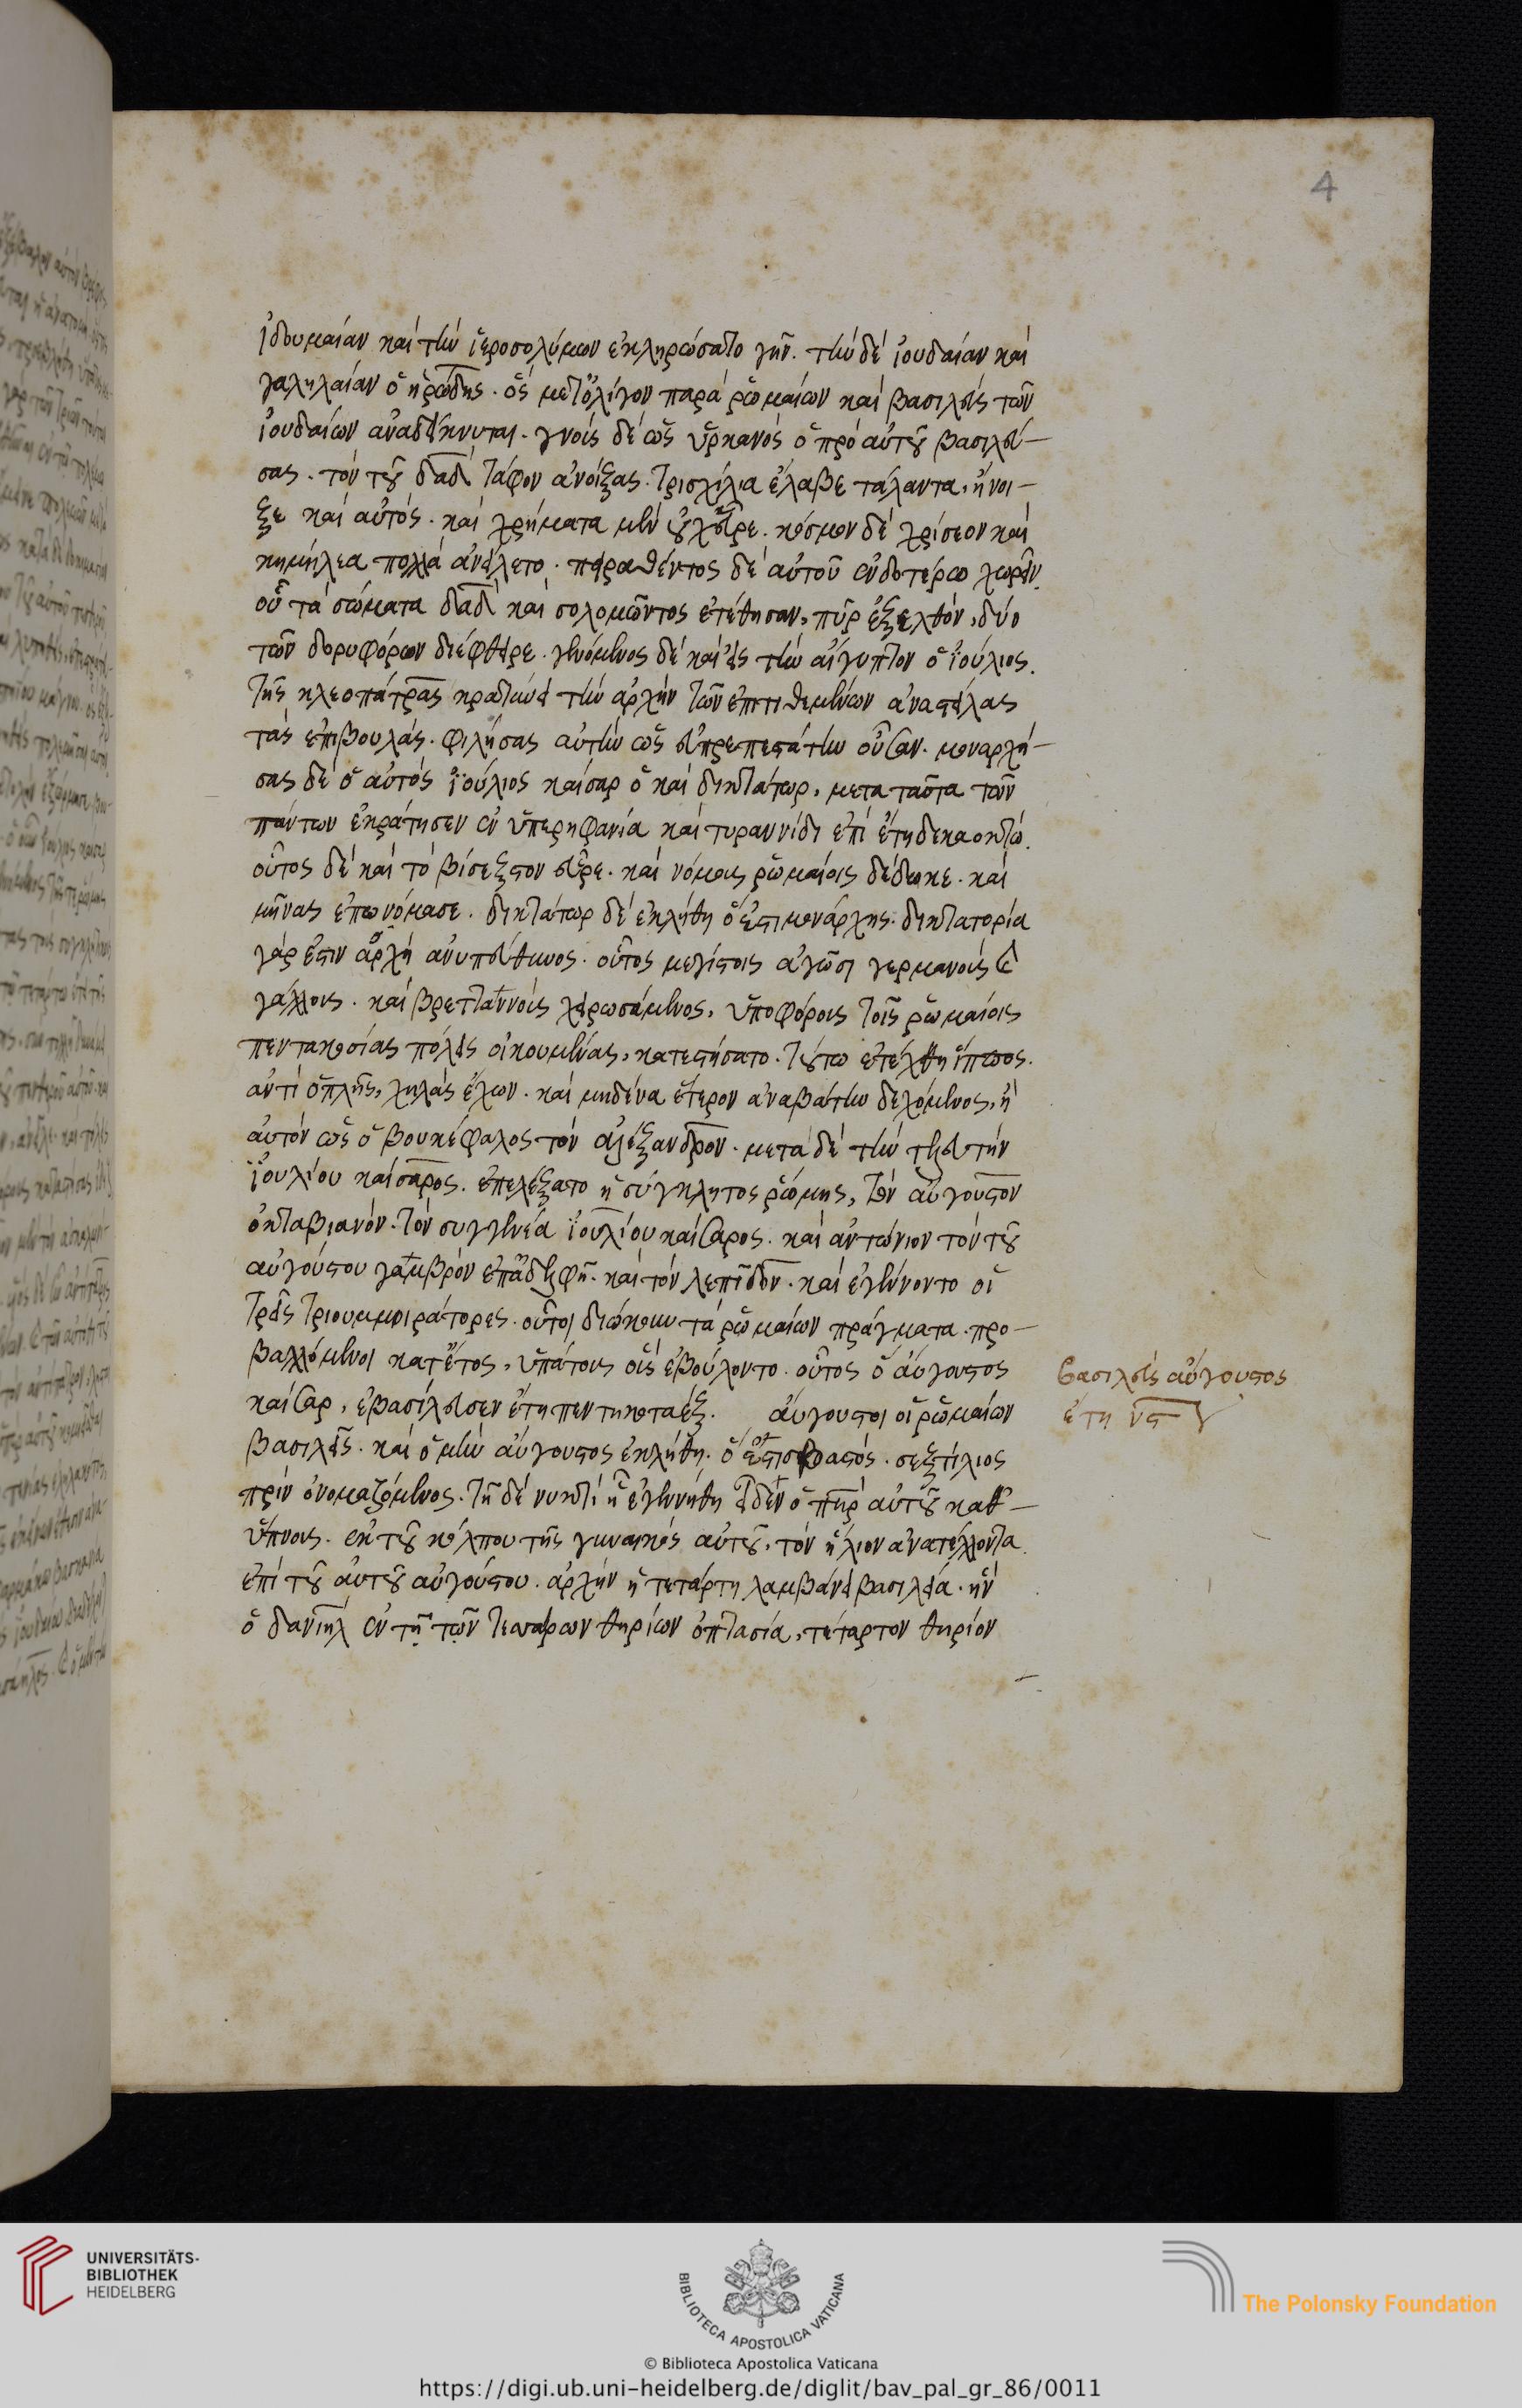 4
ἰδουμαίαν καὶ τὴν ἱεροσολύμων ἐκληρώσατο γῆν. τὴν δὲ ἰουδαίαν καὶ
γαληλαίαν ὁ ἡρώδης. ὃς μετ' ὀλίγον παρὰ ῥωμαίων καὶ βασιλεὺς τῶν
ἰουδαίων ἀναδείκνυται. γνοὺς δὲ ὡς ὑρκανὸς ὁ πρὸ αὐτοῦ βασιλεύ-
σας. τὸν τοῦ δαδ τάφον ἀνοίξας. τρισχίλια ἔλαβε τάλαντα, ἤνοι-
ξε καὶ αὐτός. καὶ χρήματα μὲν οὐχ εὗρε. κόσμον δὲ χρύσεον καὶ
κημήλεα πολλὰ ἀνείλετο. πειραθέντος δὲ αὐτοῦ ἐνδοτέρω χωρεῖν.
οὗ τὰ σώματα δαδ καὶ σολομῶντος ἐτέθησαν, πῦρ ἐξελθὸν, δύο
τῶν δορυφόρων διέφθειρε. γενόμενος δὲ καὶ εἰς τὴν αἴγυπτον ὁ ἰούλιος.
τῆς κλεοπάτρας κρατύνει τὴν ἀρχὴν τῶν ἐπιτιθεμένων ἀναστείλας
τὰς ἐπιβουλάς. φιλήσας αὐτὴν ὡς εὐπρεπεστάτην οὖσαν. μοναρχή-
σας δὲ ὁ αὐτὸς ἰούλιος καίσαρ ὁ καὶ δικτάτωρ, μετα ταῦτα τῶν
πάντων ἐκράτησεν ἐν ὑπερηφανία καὶ τυραννίδι ἐπὶ ἔτη δεκαοκτώ.
οὗτος δὲ καὶ τὸ βίσεξτον εὗρε. καὶ νόμους ῥωμαίοις δέδωκε. καὶ
μῆνας ἐπωνόμασε. δικτάτωρ δὲ ἐκλήθη ὅ ἐστι μονάρχης. δικτατορία
γάρ ἐστιν ἀρχὴ ἀνυπεύθυνος. οὗτος μεγίστοις ἀγῶσι γερμανοὺς καὶ
γάλλους. καὶ βρεττανοὺς χειρωσάμενος, ὑποφόρους τοῖς ῥωμαίοις
πεντακοσίας πόλεις οἰκουμένας, κατεστήσατο. τούτω ἐτέχθη ἵππος.
ἀντὶ ὁπλῆς, χηλὰς ἔχων. καὶ μηδένα ἕτερον ἀναβάτην δεχόμενος, ἢ
αὐτὸν ὡς ὁ βουκέφαλος τὸν ἀλέξανδρον. μετὰ δὲ τὴν τελευτὴν
ἰουλίου καίσαρος. ἐπελέξατο ἡ σύγκλητος ῥώμης, τὸν αὔγουστον
ὀκταβιανόν. τὸν συγγενέα ἰουλίου καίσαρος. καὶ ἀντώνιον τὸν τοῦ
αὐγούστου γαμβρὸν ἐπ' ἀδελφῆ. καὶ τὸν λεπῖδον. καὶ ἐγένοντο οἱ
τρεῖς τριουμμοιράτορες. οὗτοι διώκουν τὰ ῥωμαίων πράγματα. προ-
βαλλόμενοι κατ' ἔτος, ὑπάτους οἷς ἐβούλοντο. οὗτος ὁ αὔγουστος
καίσαρ, ἐβασίλευσεν ἔτη πεντηκοταέξ. αὔγουστοι οἱ ῥωμαίων
βασιλεῖς. καὶ ὁ μὲν αὔγουστος ἐκλήθη. ὅ ἐστι σεβαστός. σεξτίλιος
πρὶν ὀνομαζόμενος. τῆ δὲ νυκτὶ ἧ ἐγεννήθη εἶδεν ὁ πηρ αὐτοῦ καθ'
ὕπνους. ἐκ τοῦ κόλπου τῆς γυναικὸς αὐτοῦ, τὸν ἥλιον ἀνατέλλοντα.
ἐπὶ τοῦ αὐτοῦ αὐγούστου. ἀρχὴν ἡ τετάρτη λαμβάνει βασιλεία. ἣν
ὁ δανιηλ ἐν τῆ τῶν τεσσάρων θηρίων ὀπτασία, τέταρτον θηρίον
βασιλεὺς αὔγουστος
ἔτη νς
UNIVERSITÄTS-
BIBLIOTHEK
HEIDELBERG
BIBLIOTECA APOSTOLICA VATICANA
The Polonsky Foundation
© Biblioteca Apostolica Vaticana
https://digi.ub.uni-heidelberg.de/diglit/bav_pal_gr_86/0011